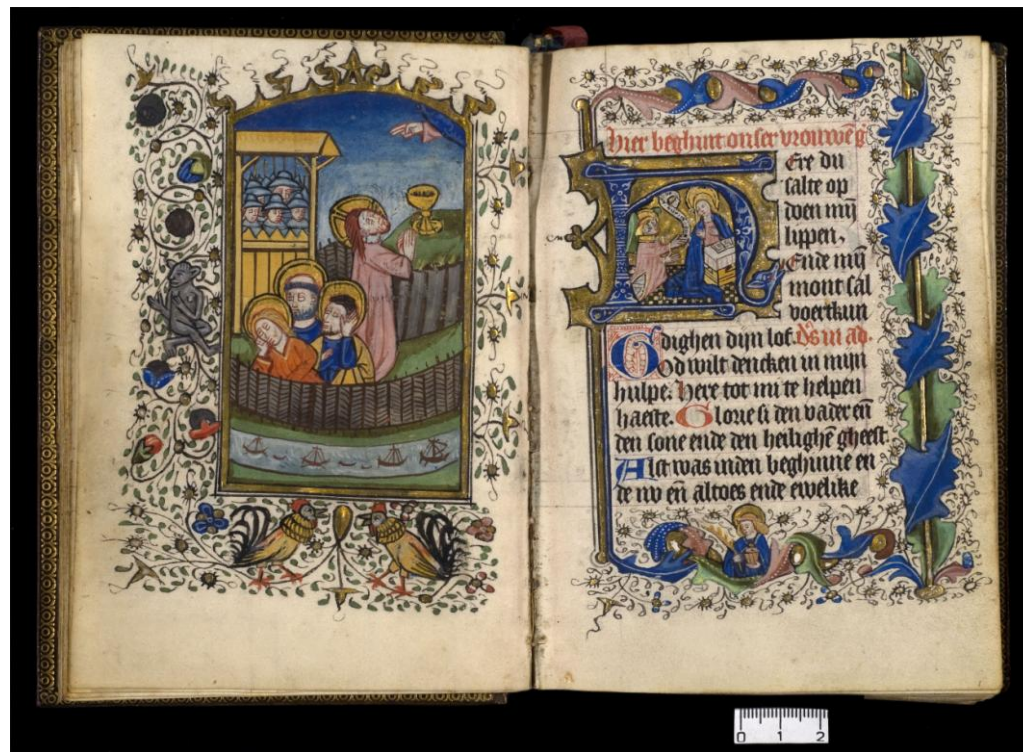 Hier beghint onser vrouwē g
Ere du
salte op
doen mijn
lippen.
Ende mijn
mont sal
voertkun
dighen dijn lof. Ds in ad.
God wilt dencken in mijn
hulpe. Here tot mi te helpen
haeste. Glorie si den vader en̄
den sone ende den heilighē gheest
Alst was inden beghinne en
de nv en̄ altoes ende ewelike
0 1 2